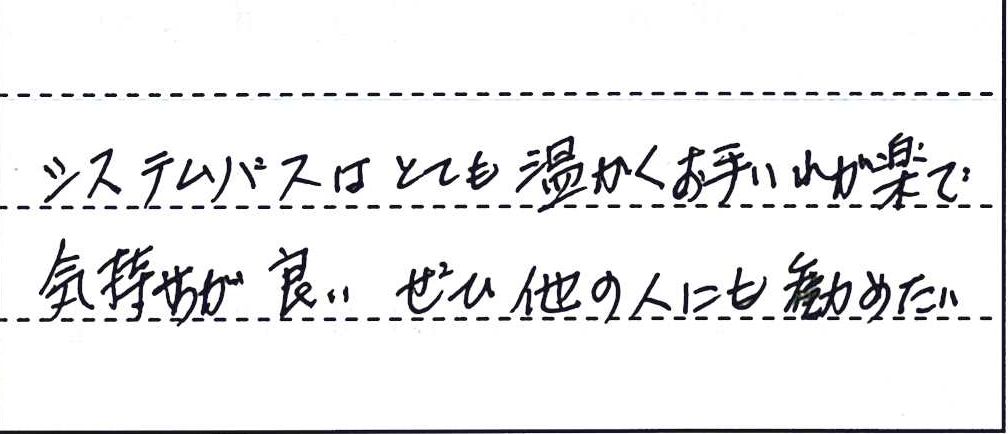 システムバスはとても温かくお手いれが楽で
気持ちが良い ぜひ他の人にも勧めたい